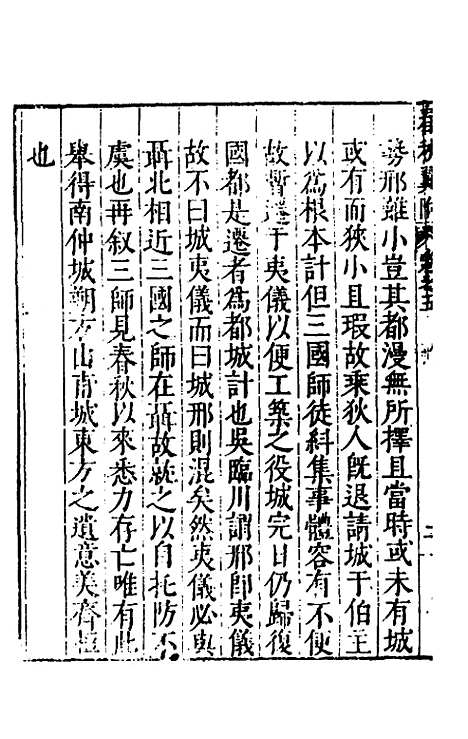 勞邢雖小豈其都漫無所擇且當時或未有城
或有而狹小且瑕故乘狄人旣退請城于伯主
以爲根本計但三國師徒糾集事體容有不便
故暫遷于夷儀以便工築之役城完日仍歸復
國都是遷者爲都城計也吳臨川謂邢卽夷儀
故不曰城夷儀而曰城邢則混矣然夷儀必與
聶北相近三國之師在聶故就之以自托防不
虞也再叙三師見春秋以來悉力存亡唯有此
舉得南仲城朔方山甫城東方之遺意美齊桓
也